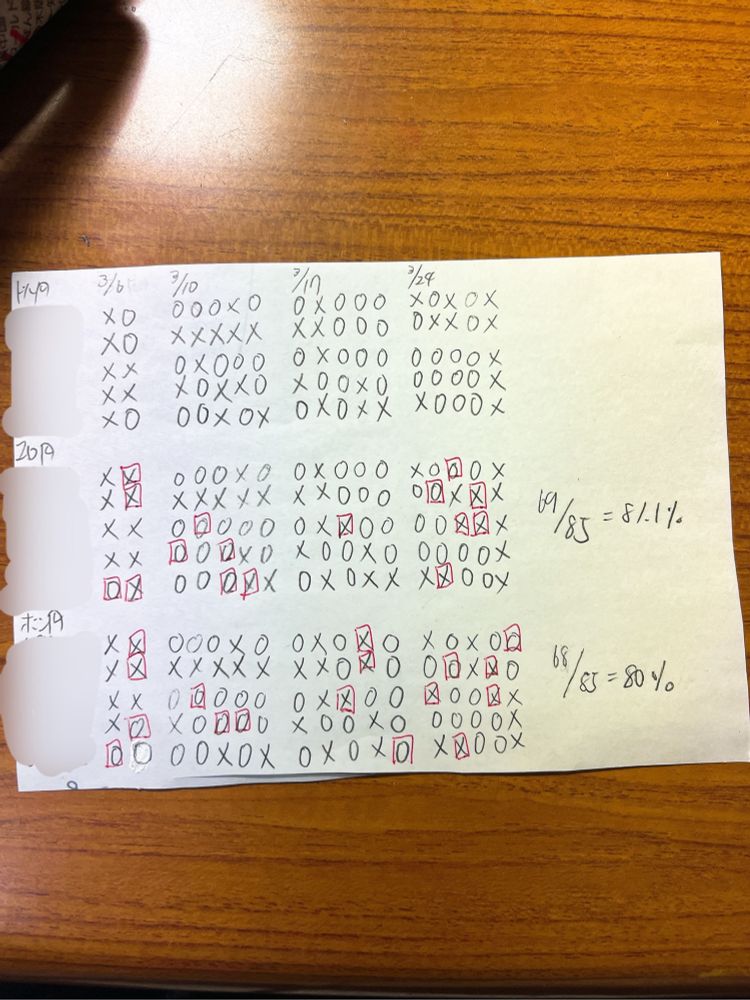 3/6 3/10 3/17 3/24
XO OOOXO OXOOO XOXOX
XO XXXXX XXOOO OXXOX
XX OXOOO OXOOO OOOOX
XX XOXXO XOOXO OOOOX
XO OOXOX OXOXX XOOOX
XX OOOXO OXOOO XOOOX
XX XXXXX XXOOO OOXXX
XX OOOOO OXXOO OOXXX
XX OOOXO XOOXO OOOOX
OX OOOXX OXOXX XXOOX
69/85 = 81.1%
XX OOOXO OXOXO XOXOO
XX XXXXX XXOXO OOXXO
XX OOOOO OXXOO XOOXX
XO XOOOO XOOXO OOOOX
OO OOXOX OXOXO XXOOX
68/85 = 80%